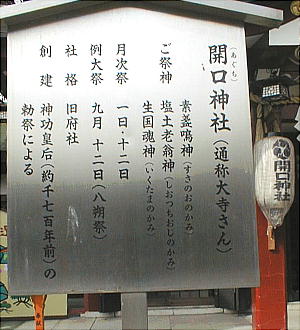 開口神社(通称大寺さん)
(あぐち)
ご祭神 素盞嗚神(すさのおのかみ)
塩土老翁神(しおつちおじのかみ)
生国魂神(いくたまのかみ)
月次祭 一日・十二日
例大祭 九月 十二日(八朔祭)
社格 旧府社
創建 神功皇后(約千七百年前)の
勅祭による
開口神社